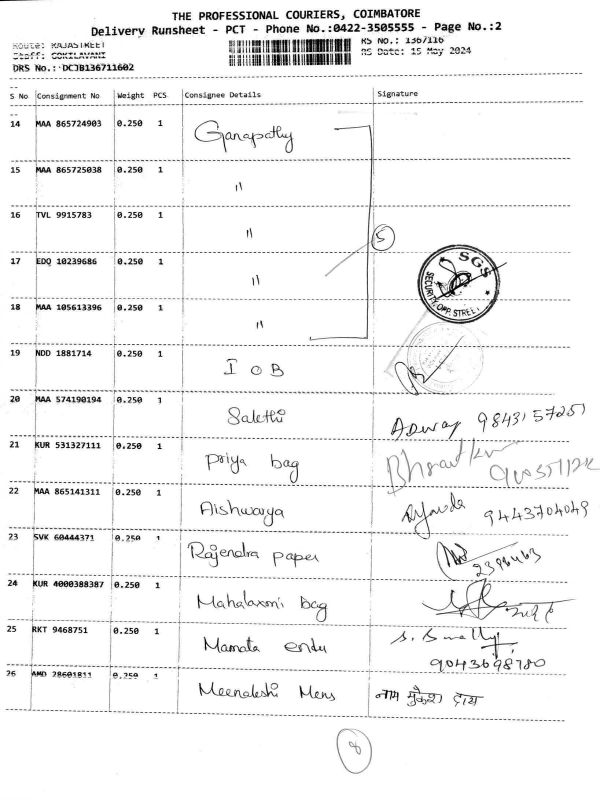 THE PROFESSIONAL COURIERS, COIMBATORE
Delivery Runsheet - PCT - Phone No.:0422-3505555 - Page No.:2
Route: RAJASTREET
RS No.: 1367116
Staff: GOKILAVANI
RS Date: 15 May 2024
DRS No.: DCJB136711602
S No Consignment No Weight PCS Consignee Details Signature
14 MAA 865724903 0.250 1 Ganapathy
15 MAA 865725038 0.250 1 "
16 TVL 9915783 0.250 1 "
5
17 EDQ 10239686 0.250 1 "
SGS
SECURITY, OPP. STREET
18 MAA 105613396 0.250 1 "
19 NDD 1881714 0.250 1 I O B
20 MAA 574190194 0.250 1 Salethi
21 KUR 531327111 0.250 1 Priya bag
22 MAA 865141311 0.250 1 Aishwarya 9443704049
23 SVK 60444371 0.250 1 Rajendra paper
24 KUR 4000388387 0.250 1 Mahalaxmi bag
25 RKT 9468751 0.250 1 Mamata
9043698780
26 AMD 28601811 0.250 1 Meenakshi Mens नाम मुकेश
8